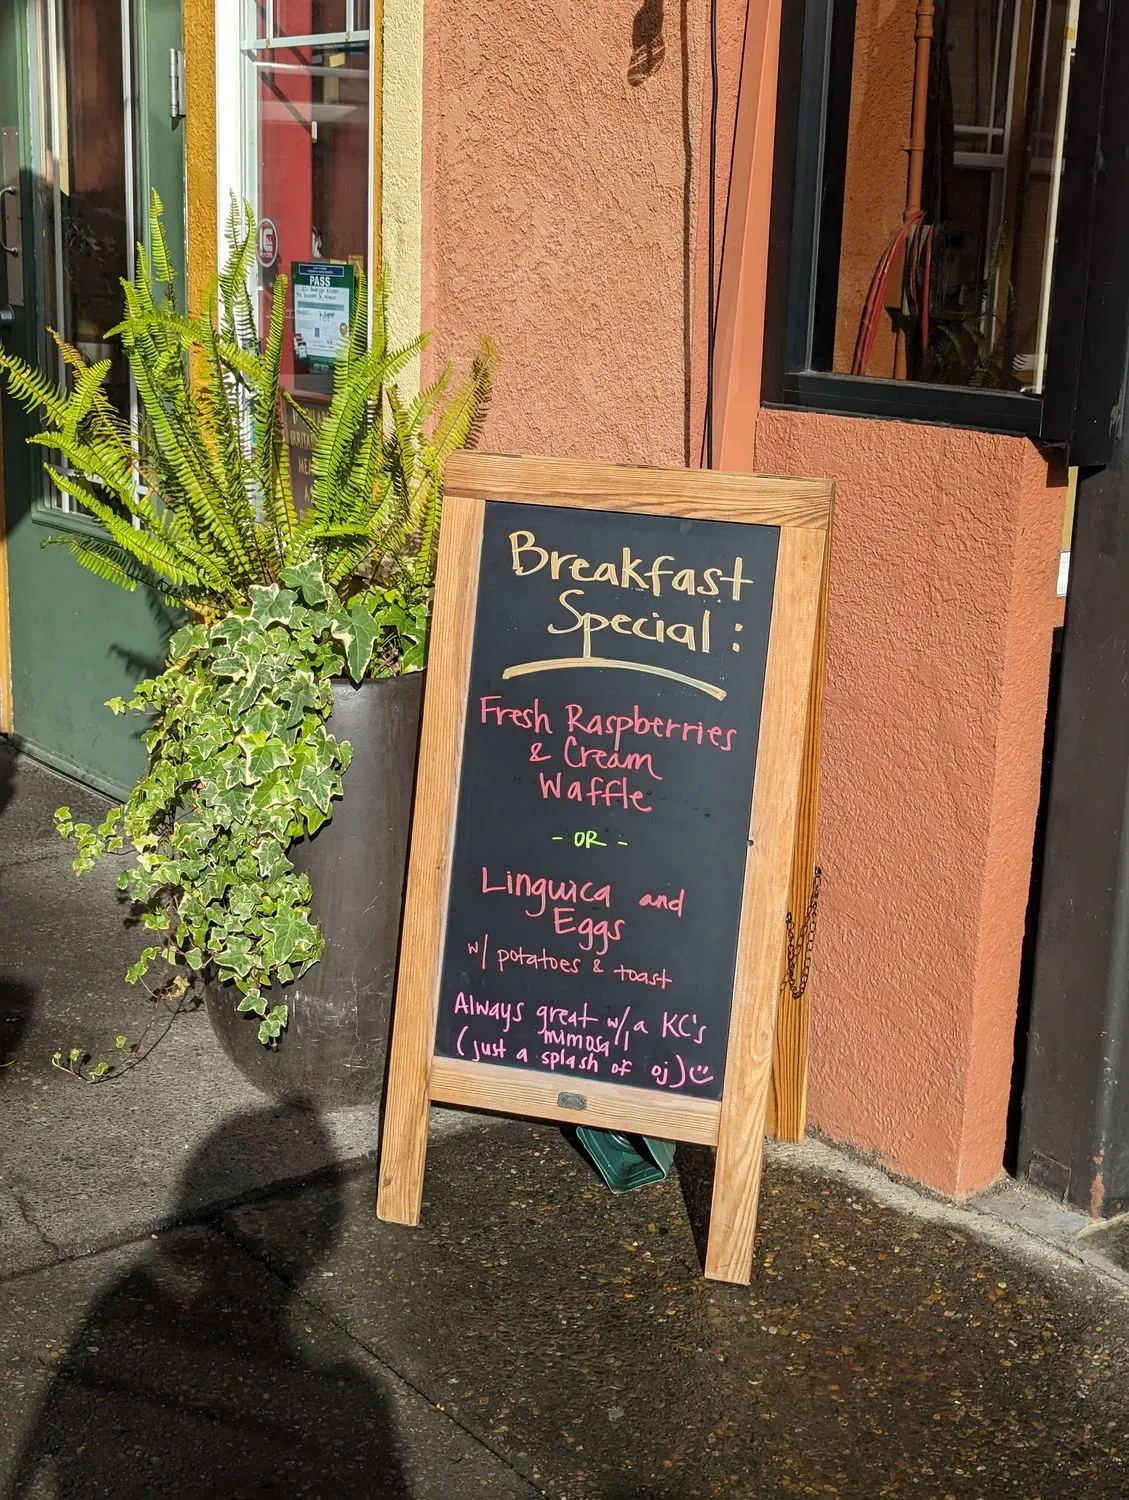 PASS
Breakfast
Special:
Fresh Raspberries
& Cream
Waffle
- OR -
Linguica and
Eggs
w/ potatoes & toast
Always great w/ a KC's
mimosa
(just a splash of oj)